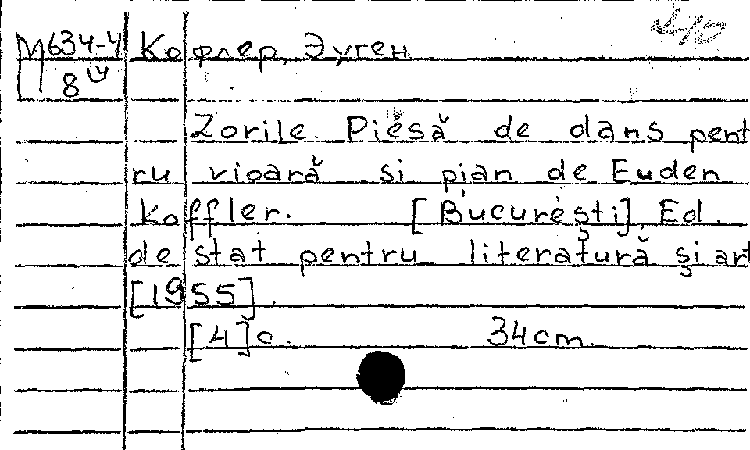 М634-4 Кофлер, Эуген
8
Zorile Piesă de dans pent
ru vioară si pian de Euden
Koffler. [București], Ed.
de stat pentru literatură și art
[1955].
[4]с. 34cm.